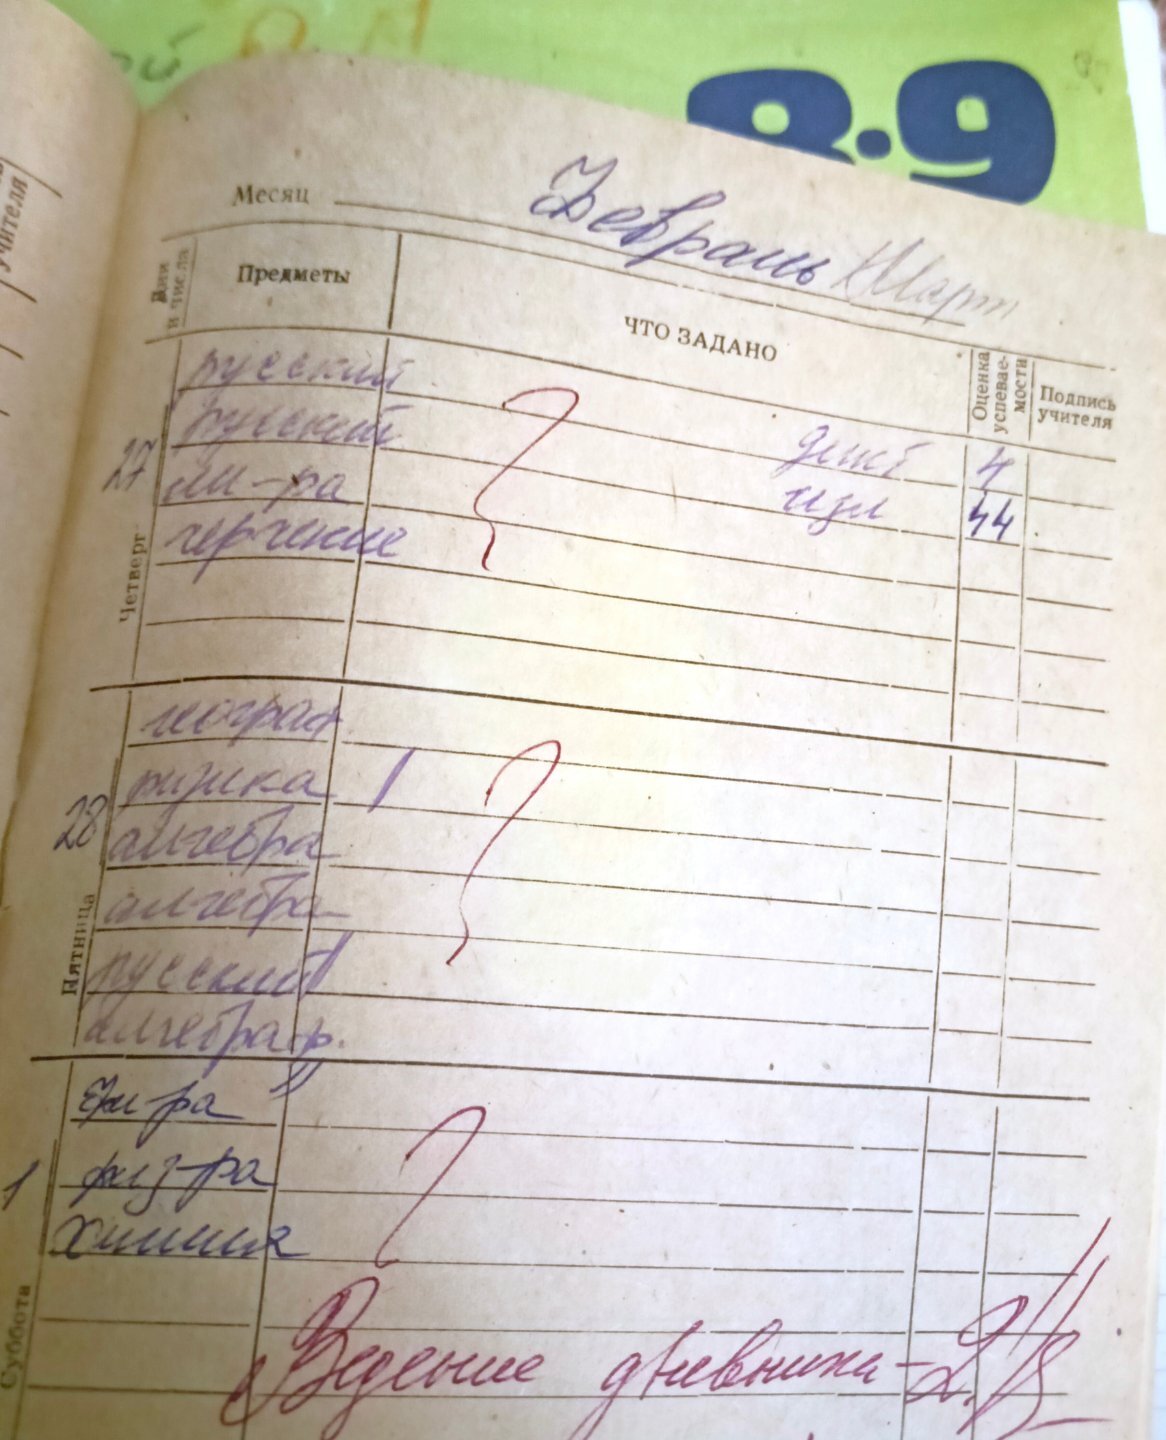 8·9
учителя
Месяц Февраль Март
Дни и числа
Предметы
ЧТО ЗАДАНО
Оценка успевае-мости
Подпись учителя
Четверг
27
русский
русский дикт 4
ли-ра изл 44
черчение
Пятница
28
географ
физика
алгебра
алгебра
русский
алгебра ф.
Суббота
1
физ-ра
химия
Ведение дневника - 2.